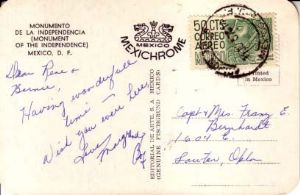 MONUMENTO
DE LA INDEPENDENCIA
(MONUMENT
OF THE INDEPENDENCE)
MEXICO, D. F.
MEXICO
MEXICHROME
50 CTS
CORREO
AEREO
Dear Rene &
Bernie,
Having wonderfull
time
Wish you were here
Love,
EDITORIAL DE ARTE, S. A. MEXICO
(GENUINE CARDS)
Printed
in Mexico
Capt & Mrs. Franz E.
Bernhardt
1604 E
Lawton, Okla